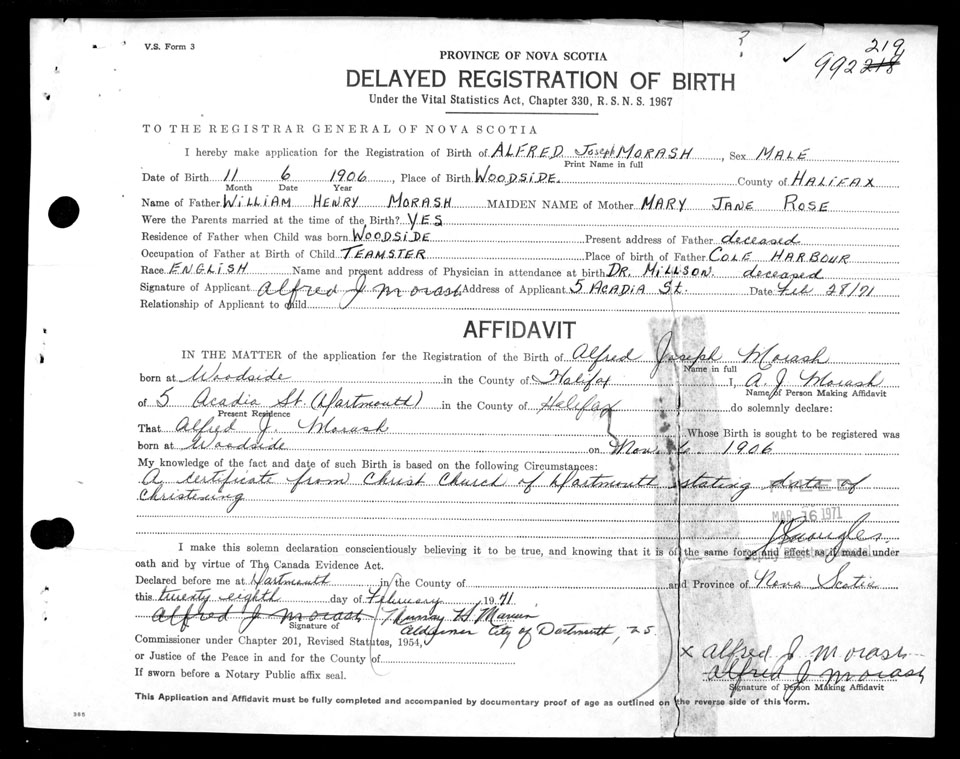 V.S. Form 3
219
992 218
PROVINCE OF NOVA SCOTIA
DELAYED REGISTRATION OF BIRTH
Under the Vital Statistics Act, Chapter 330, R.S.N.S. 1967
TO THE REGISTRAR GENERAL OF NOVA SCOTIA
I hereby make application for the Registration of Birth of ALFRED Joseph MORASH, Sex MALE
Print Name in full
Date of Birth 11 6 1906, Place of Birth WOODSIDE. County of HALIFAX
Month Date Year
Name of Father WILLIAM HENRY MORASH MAIDEN NAME of Mother MARY JANE ROSE
Were the Parents married at the time of the Birth? YES
Residence of Father when Child was born WOODSIDE Present address of Father deceased
Occupation of Father at Birth of Child TEAMSTER Place of birth of Father COLE HARBOUR
Race ENGLISH Name and present address of Physician in attendance at birth DR. MILLSON. deceased
Signature of Applicant Alfred J Morash Address of Applicant 5 ACADIA St. Date Feb 28/71
Relationship of Applicant to child
AFFIDAVIT
IN THE MATTER of the application for the Registration of the Birth of Alfred Joseph Morash
Name in full
born at Woodside in the County of Halifax I, A. J Morash
Name of Person Making Affidavit
of 5 Acadia St. (Dartmouth) in the County of Halifax do solemnly declare:
Present Residence
That Alfred J. Morash Whose Birth is sought to be registered was
born at Woodside on Nov. 6. 1906
My knowledge of the fact and date of such Birth is based on the following Circumstances:
A certificate from Christ Church of Dartmouth stating date of
Christening
MAR 16 1971
I make this solemn declaration conscientiously believing it to be true, and knowing that it is of the same force and effect as if made under
oath and by virtue of The Canada Evidence Act.
Declared before me at Dartmouth in the County of and Province of Nova Scotia
this twenty eighth day of February 1971
Alfred J Morash Murray H
Signature of City of Dartmouth, N.S.
Commissioner under Chapter 201, Revised Statutes, 1954,
or Justice of the Peace in and for the County of
X Alfred J Morash
If sworn before a Notary Public affix seal.
Alfred J Morash
Signature of Person Making Affidavit
This Application and Affidavit must be fully completed and accompanied by documentary proof of age as outlined on the reverse side of this form.